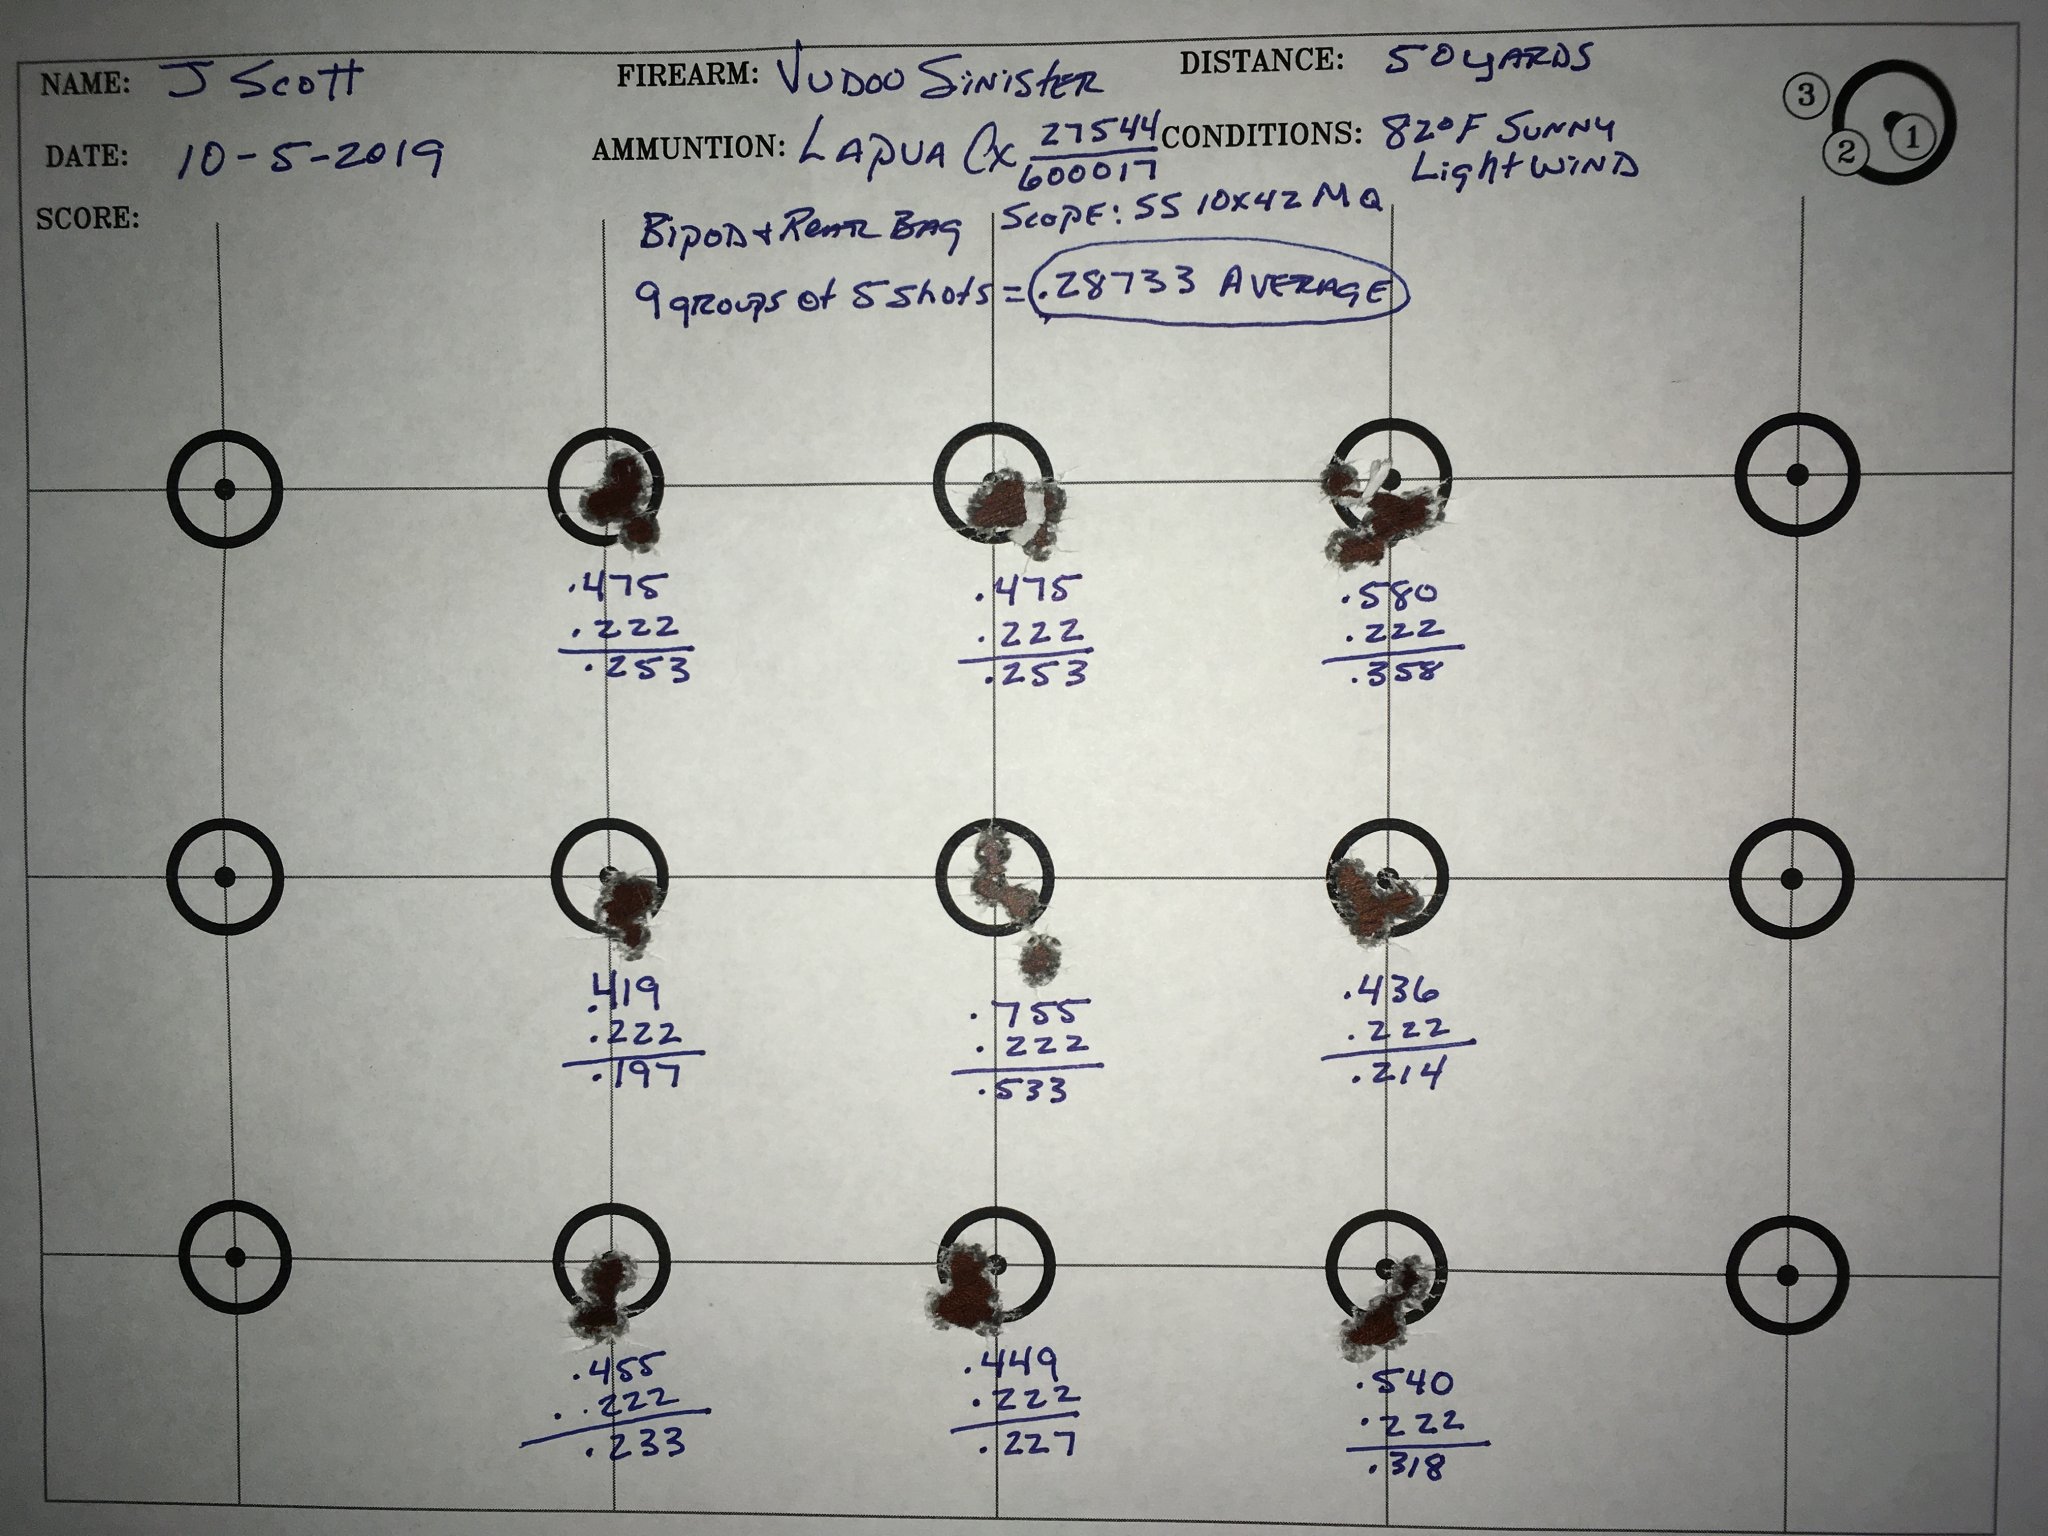 NAME: J Scott
FIREARM: VUDOO SINISTER
DISTANCE: 50 YARDS
DATE: 10-5-2019
AMMUNTION: LAPUA CX 27544
600017
CONDITIONS: 82°F SUNNY
Light WIND
3
2
1
SCORE:
BIPOD + REAR BAG SCOPE: SS 10X42 MQ
9 groups of 5 shots = .28733 AVERAGE
.475
.222
.253
.475
.222
.253
.580
.222
.358
.419
.222
.197
.755
.222
.533
.436
.222
.214
.455
.222
.233
.449
.222
.227
.540
.222
.318